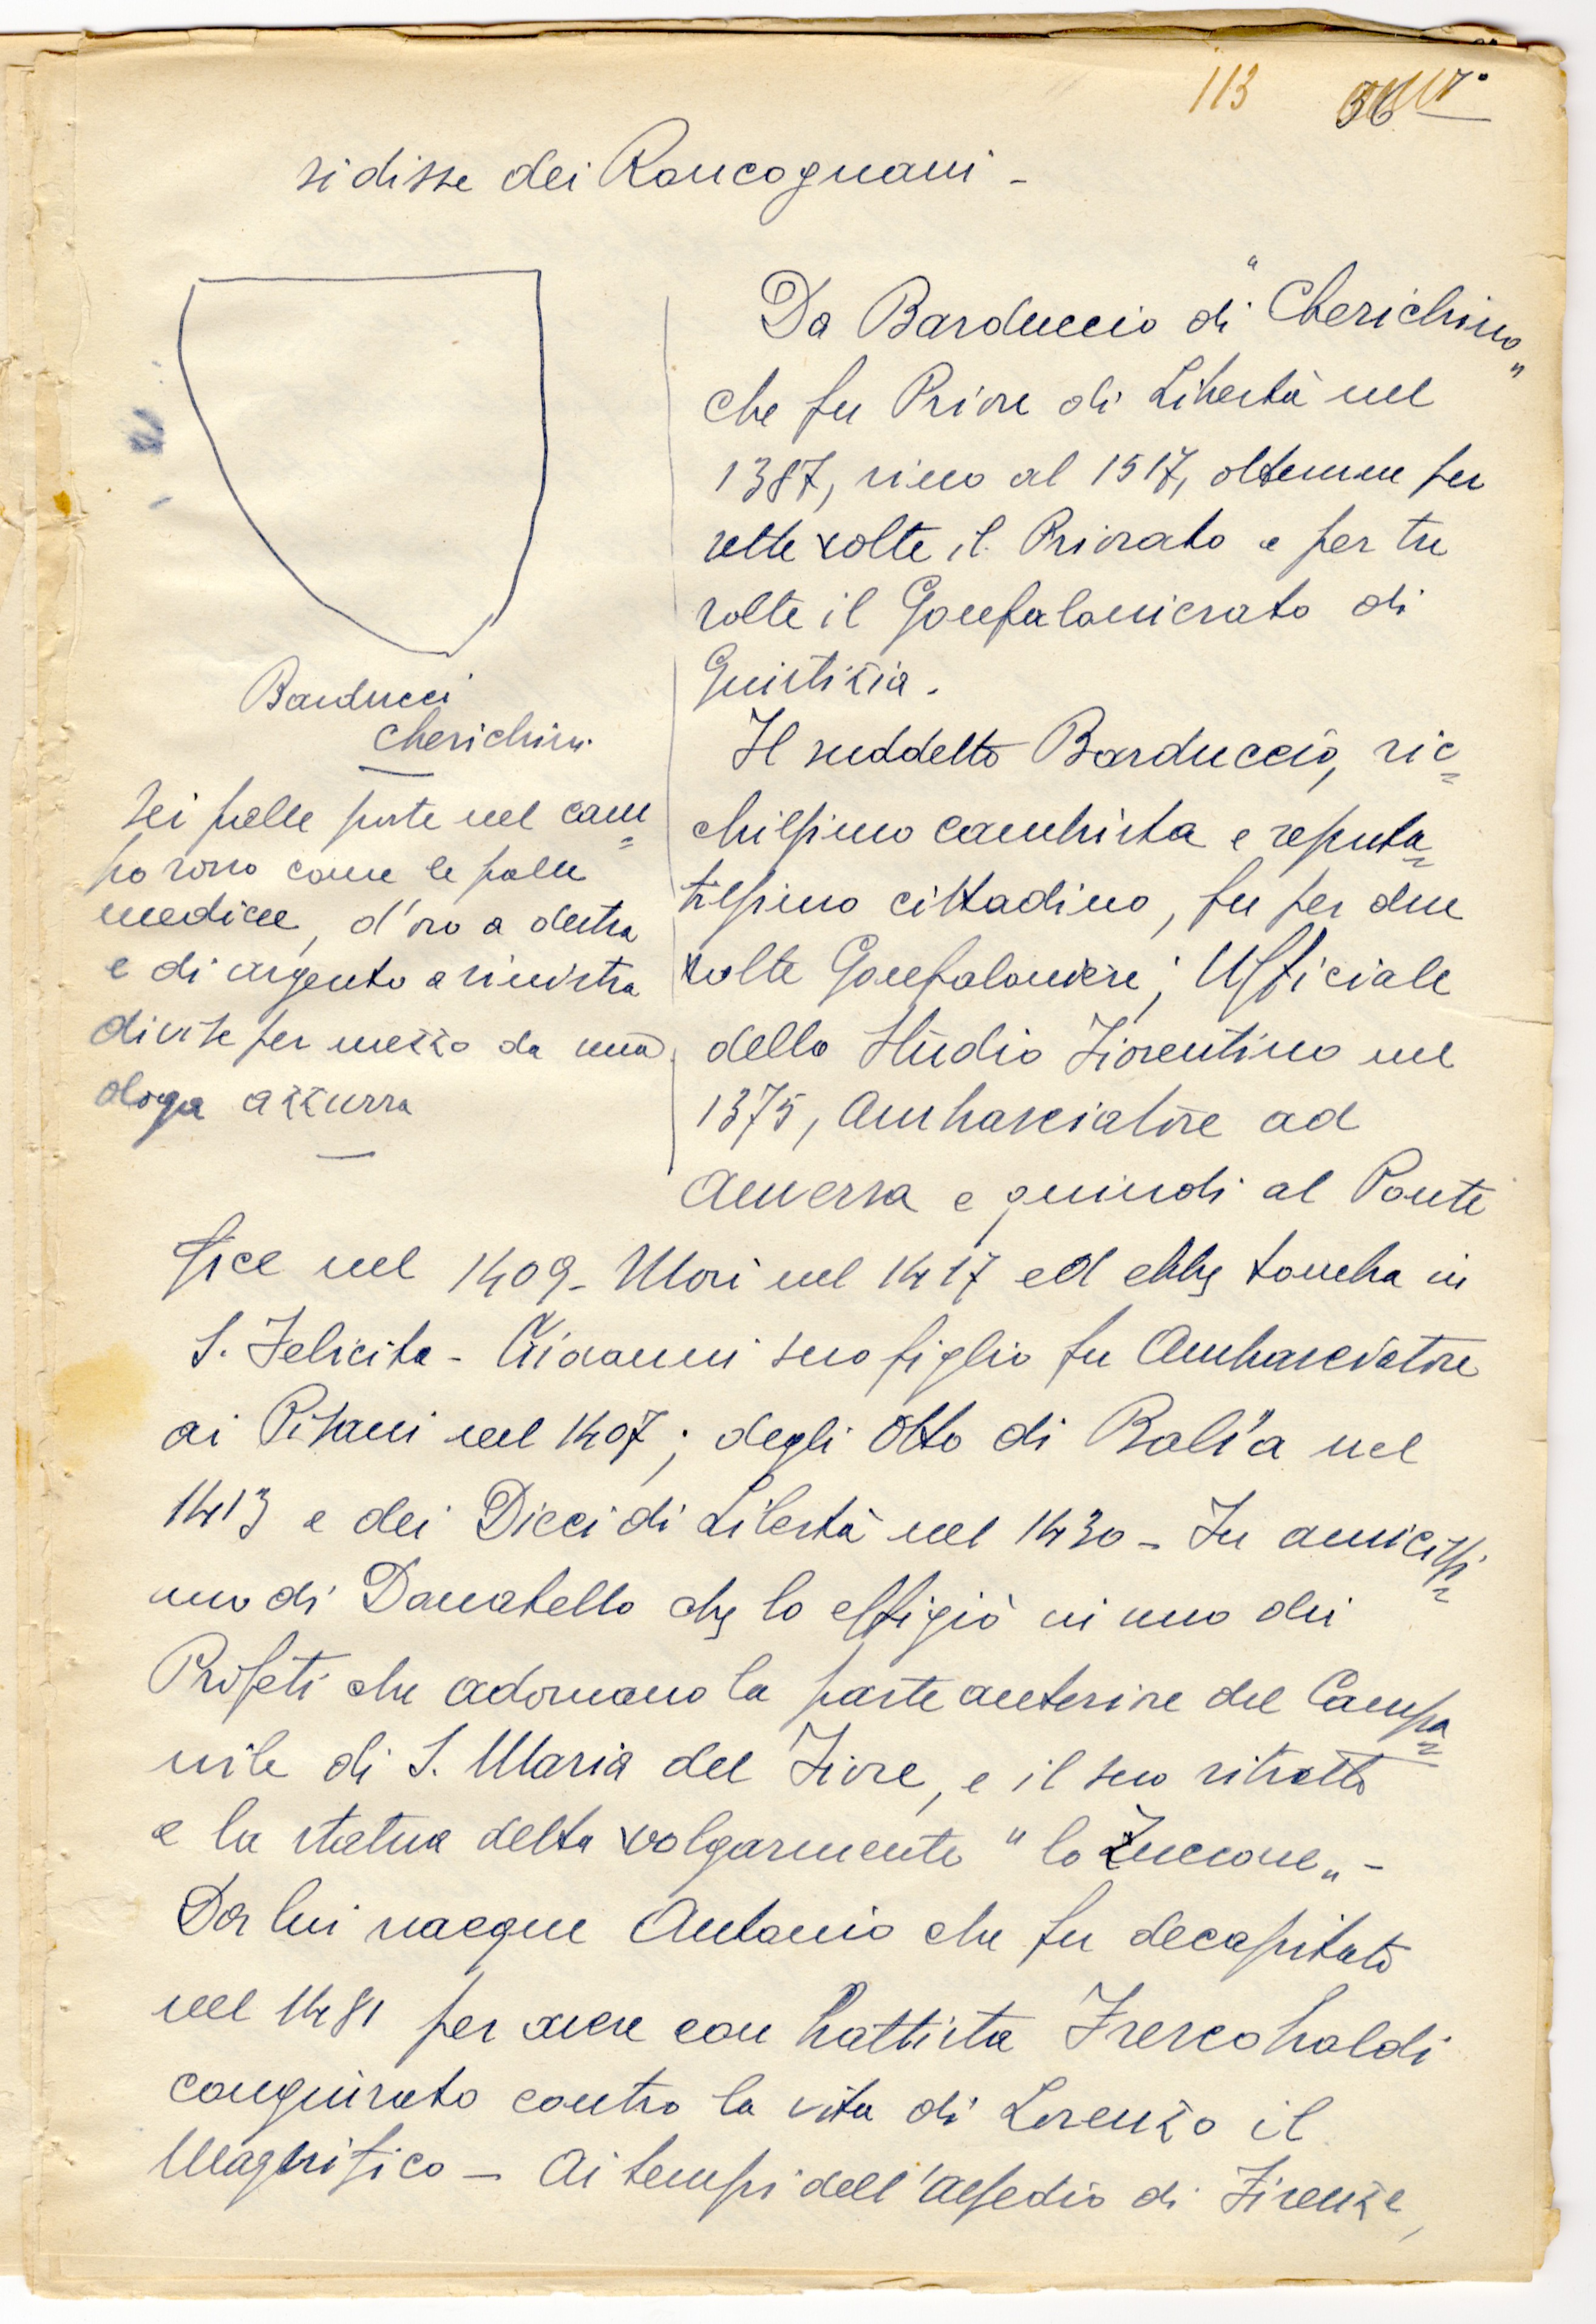 113
si disse dei Roncognani -
Barducci
Cherichini
sei palle poste nel cam=
po sono come le palle
medicee, d'oro a destra
e di argento a sinistra
divise per mezzo da una
doga azzurra
Da Barduccio di "Cherichino"
che fu Priore di Libertà nel
1387, sino al 1517, ottenne per
sette volte il Priorato e per tre
volte il Gonfalonierato di
Giustizia.
Il suddetto Barduccio, ric=
chissimo cambista e reputa=
tissimo cittadino, fu per due
volte Gonfaloniere; Ufficiale
dello Studio Fiorentino nel
1375, Ambasciatore ad
Anversa e quindi al Ponte
fice nel 1409 - Morì nel 1417 ed ebbe tomba in
S. Felicita - Giovanni suo figlio fu Ambasciatore
ai Pisani nel 1407; degli Otto di Balìa nel
1413 e dei Dieci di Libertà nel 1430 - Fu amicissi=
mo di Donatello che lo effigiò in uno dei
Profeti che adornano la parte anteriore del Campa=
nile di S. Maria del Fiore, e il suo ritratto
e la statua detta volgarmente "lo Zuccone" -
Da lui nacque Antonio che fu decapitato
nel 1481 per avere con Battista Frescobaldi
congiurato contro la vita di Lorenzo il
Magnifico - Ai tempi dell'assedio di Firenze,